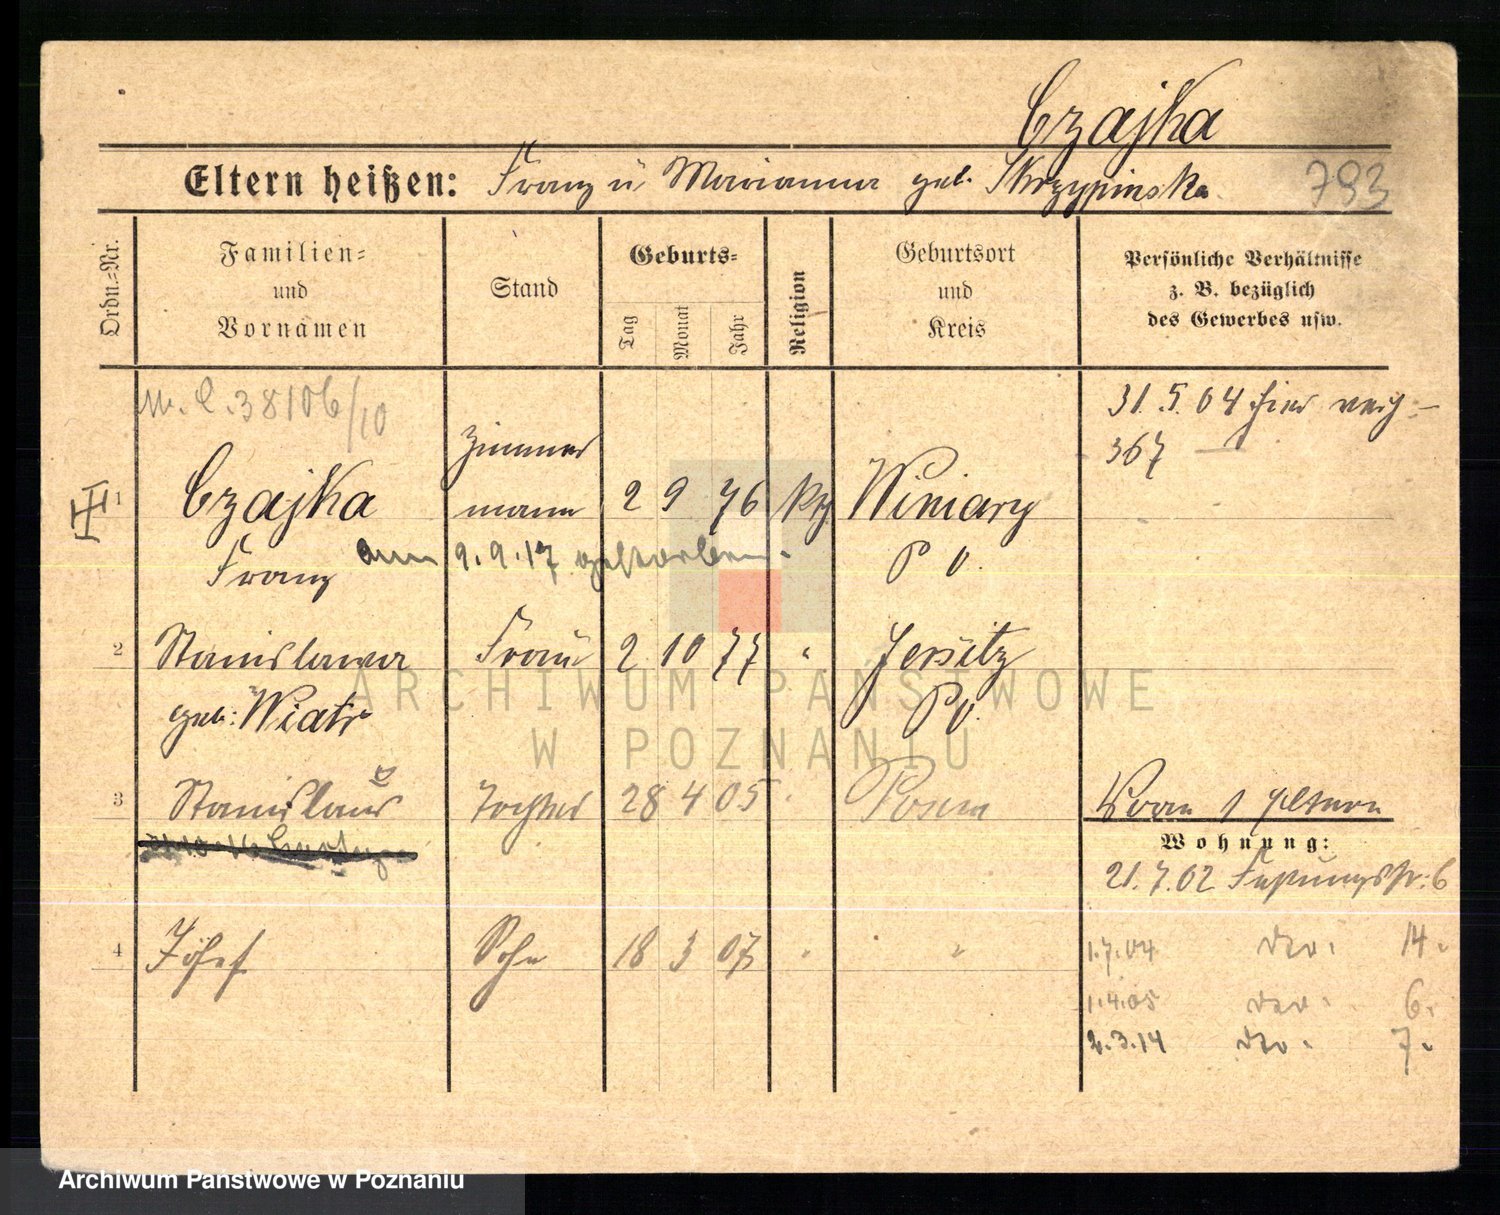 Czajka
Eltern heißen: Franz u. Marianna geb. Skrzypinska
793
Ordn.=Nr.
Familien=
und
Vornamen
Stand
Geburts=
Tag
Monat
Jahr
Religion
Geburtsort
und
Kreis
Persönliche Verhältnisse
z. B. bezüglich
des Gewerbes usw.
38106/10
31.5.04 hier
367
Zimmer
1 Czajka mann 2 9 76 kth Winiary
Franz am 9.9.17 gestorben. P. O.
2 Stanislawa Frau 2 10 77 " Jersitz
geb: Wiatr P. O.
3 Stanislawa Tochter 28 4 05 " Posen
4 Josef Sohn 18 3 07 " "
Wohnung:
21.7.02 Festungsstr. 6
1.7.04 do. 14.
1.4.05 do. 6.
2.3.14 do. 7.
ARCHIWUM PAŃSTWOWE
W POZNANIU
Archiwum Państwowe w Poznaniu